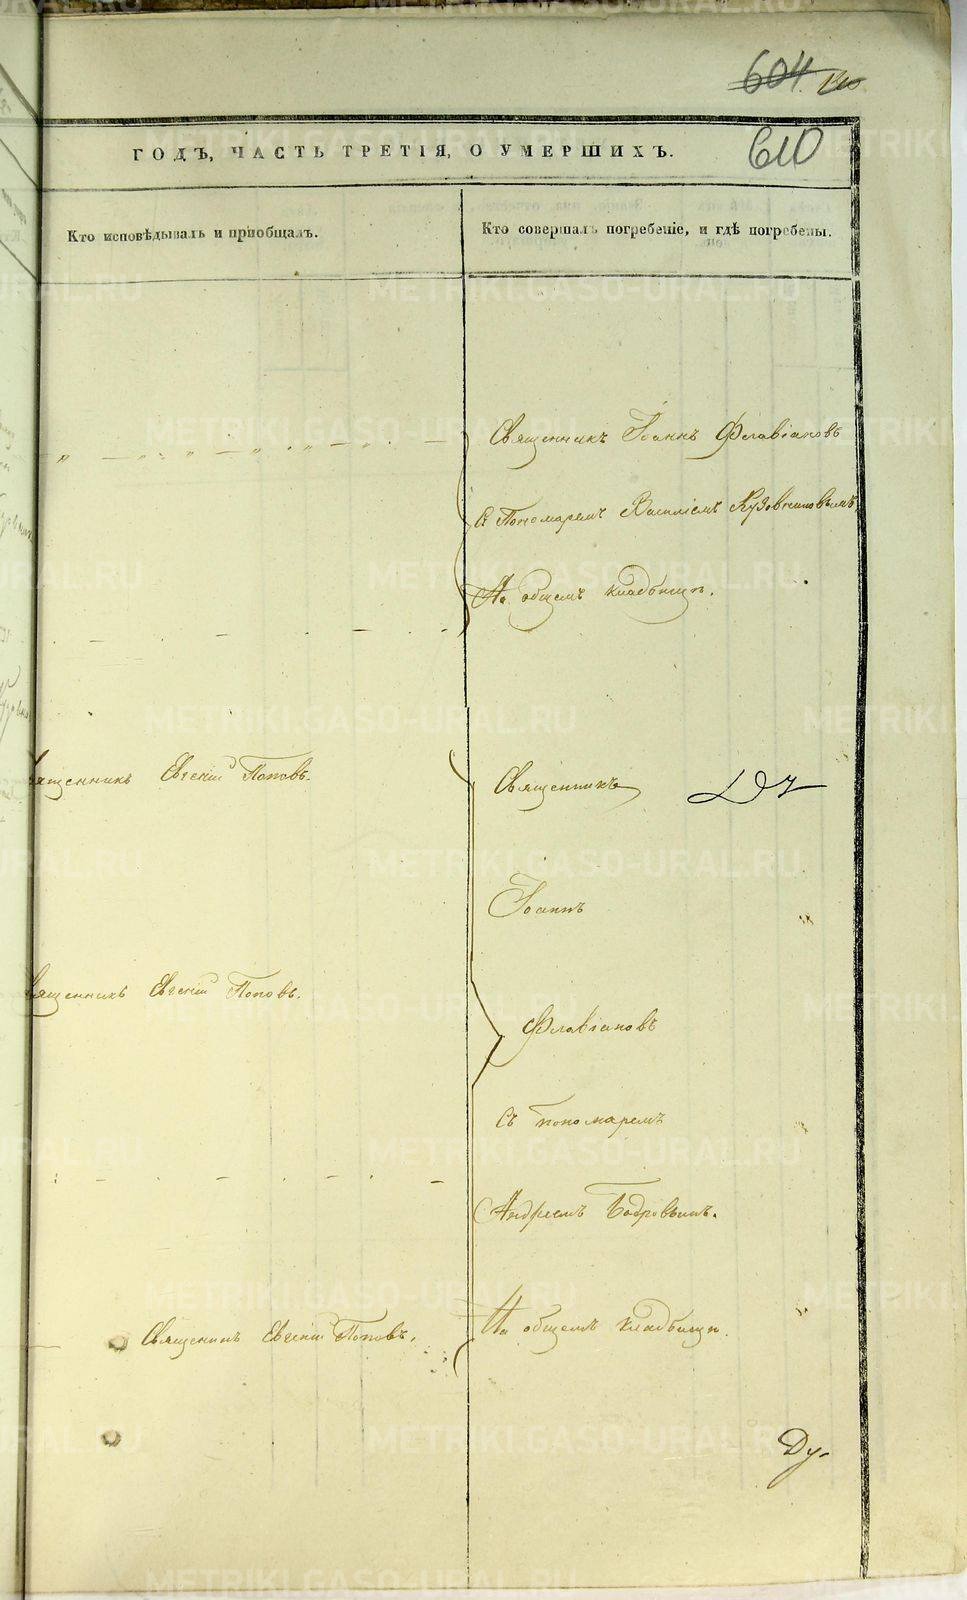 604.
610
ГОДЪ, ЧАСТЬ ТРЕТІЯ, О УМЕРШИХЪ.
Кто исповѣдывалъ и пріобщалъ.
Кто совершалъ погребеніе, и гдѣ погребены.
Священникъ Іоаннъ Флавіановъ
Съ Пономаремъ Василіемъ Кузовниковымъ,
На общемъ кладбищѣ.
Священникъ Евгеній Поповъ.
Священникъ
Іоаннъ
Священникъ Евгеній Поповъ.
Флавіановъ
Съ пономаремъ
Андреемъ Бодровымъ.
На общемъ кладбищѣ.
Священникъ Евгеній Поповъ.
Ду-
METRIKI.GASO-URAL.RU